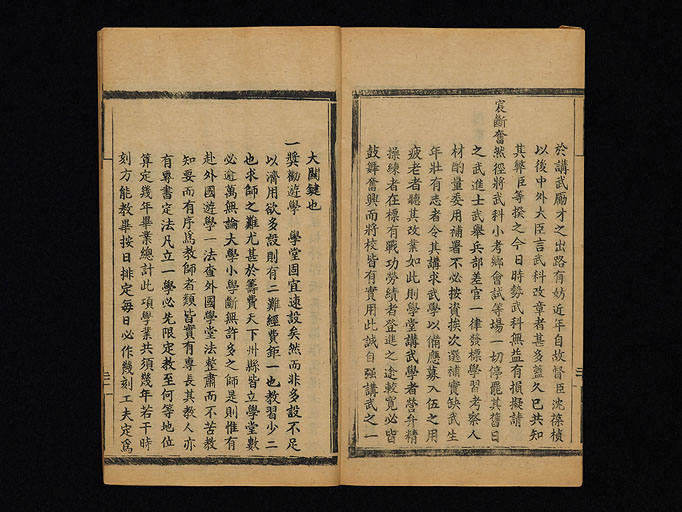 於講武厲才之出路有妨近年自故督臣沈葆楨
以後中外大臣言武科改章者甚多蓋久已共知
其弊臣等揆之今日時勢武科無益有損擬請
宸斷奮然徑將武科小考鄉會試等場一切停罷其舊日
之武進士武舉兵部差官一律發標學習考察人
材酌量委用補署不必按資挨次選補實缺武生
年壯有志者令其講求武學以備應募入伍之用
疲老者聽其改業如此則學堂講武學者營弁精
操練者在標有戰功勞績者登進之途較寬必皆
鼓舞奮興而將校皆有實用此誠自强講武之一
大關鍵也
一獎勸遊學 學堂固宜速設矣然而非多設不足
以濟用欲多設則有二難經費鉅一也教習少二
也求師之難尤甚於籌費天下州縣皆立學堂數
必逾萬無論大學小學斷無許多之師是則惟有
赴外國遊學一法查外國學堂法整肅而不苦教
知要而有序爲教師者類皆實有專長其教人亦
有專書定法凡立一學必先限定教至何等地位
算定幾年畢業總計此項學業共須幾年若干時
刻方能教畢按日排定每日必作幾刻工夫定爲